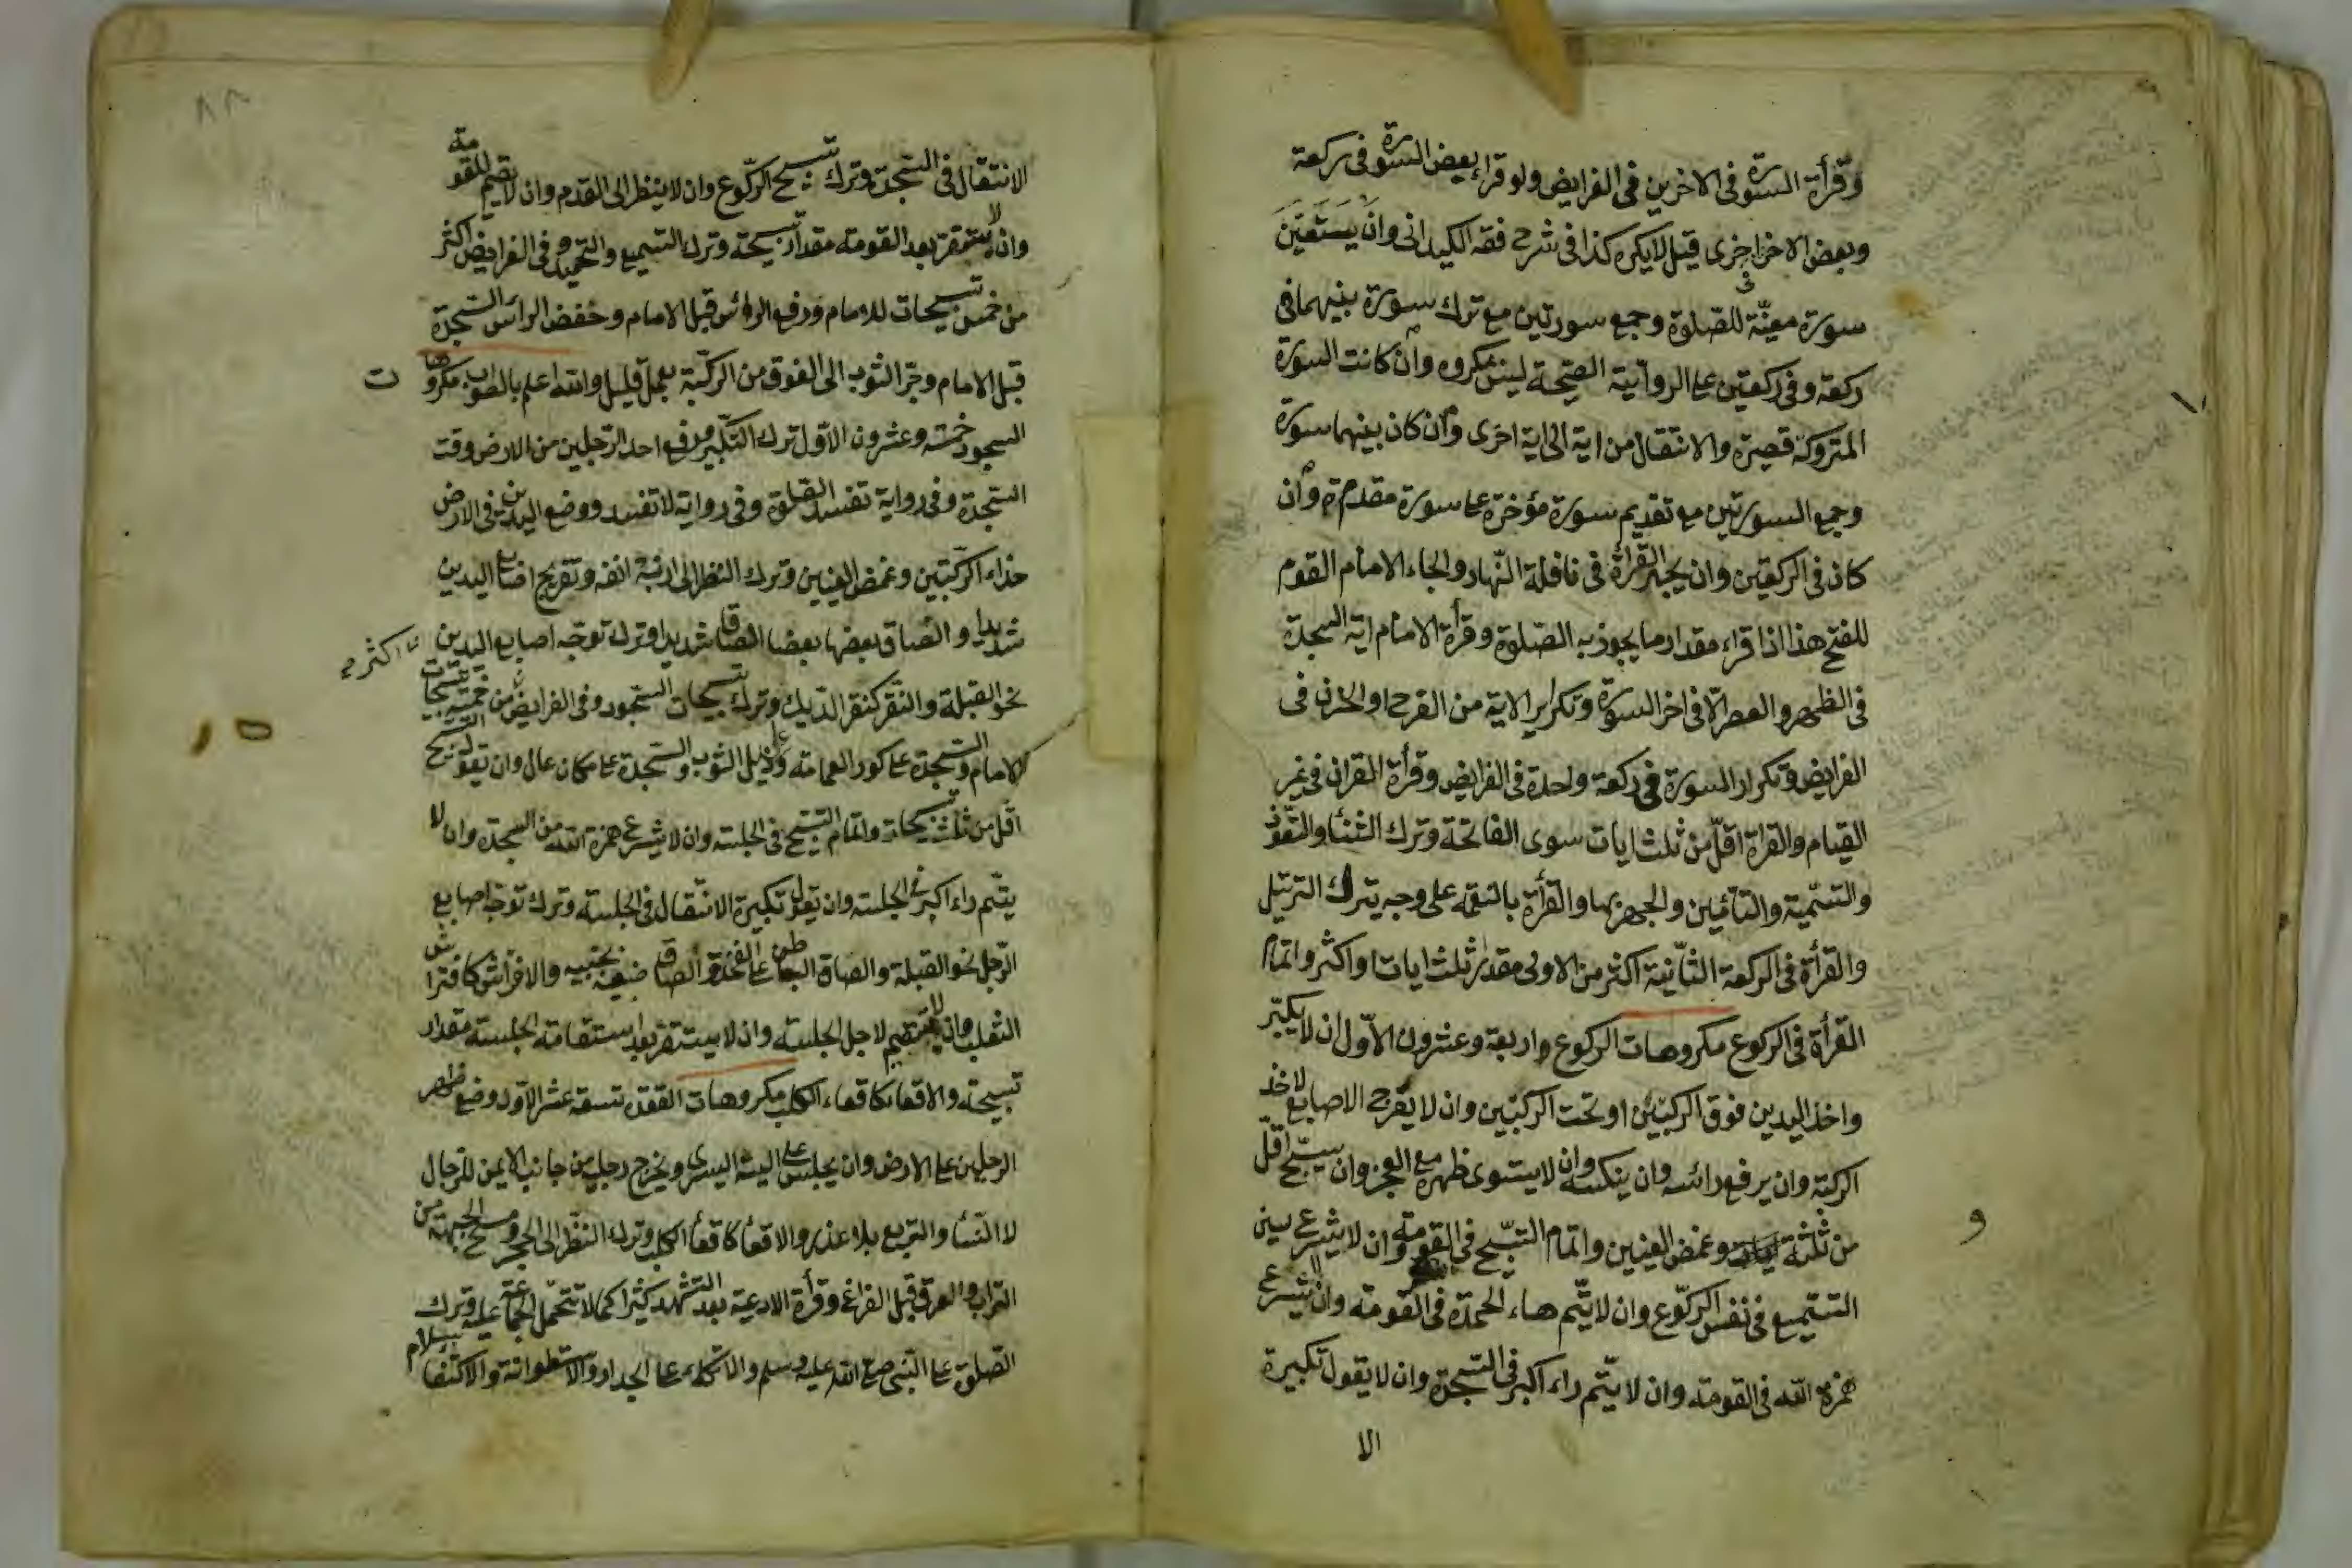 وقرأة السورة فى الاخرين فى الفرايض ولو قراء بعض السورة فى ركعة
وبعض الاخر اخرى قيل لا يكره كذا فى شرح فقه الكيدانى وان يستعين
سورة معينّة للصّلوة وجمع سورتين مع ترك سورة بينهما فى
ركعة وفى ركعتين على الرواية الصّحيحة ليس بمكروه وان كانت السورة
المتروكة قصيرة والانتقال من اية الى اية اخرى وان كان بينهما سورة
وجمع السورتين مع تقديم سورة مؤخرة على سورة مقدمة وان
كان فى الركعتين وان يجهر القرأة فى نافلة النّهار والجاء الامام القوم
للفتح هذا اذا قراء مقدار ما يجوز به الصّلوة وقرأة الامام اية السجدة
فى الظهر والعصر الّا فى اخر السورة وتكرير الاية من الفرح او الحزن فى
الفرايض وتكرار السورة فى ركعة واحدة فى الفرايض وقرأة القران فى غير
القيام والقراة اقلّ من ثلث ايات سوى الفاتحة وترك الثنأ والتعّوذ
والتسّمية والتأمين والجهر بها والقرأة بالنغمة على وجه يترك الترتيل
والقرأة فى الركعة الثّانية اكثر من الاولى مقدار ثلث ايات او اكثر واتمام
القرأة فى الركوع مكروهات الركوع اربعة وعشرون الاوّل ان لا يكبّر
واخذ اليدين فوق الركبتين او تحت الركبتين وان لا يفرج الاصابع لاخذ
الركبة وان يرفع رائسه وان ينكسه وان لا يستوى ظهره مع العجز وان يسبّح اقلّ
من ثلثة وغمض العينين واتمام التسّبيح فى القومة وان لا يشرع سين
التسّميع فى نفس الركوّع وان لا يتّم هاء الحمدة فى القومة وان لا يشرع
همزة الله فى القومة وان لا يتّم راء اكبر فى السّجدة وان لا يقول تكبيرة
الا
و
٨٨
الانتقال فى السّجدة وترك تسبيح الركّوع وان لا ينظر الى القدم وان لا يقيم للقومة
وان لا يستقر بعد القومة مقدار تسبيحة وترك التسميع والتحميد وفى الفرايض اكثر
من خمس تسبيحات للامام ورفع الرائس قبل الامام وخفض الرائس السّجدة
قبل الامام وجرّ الثوب الى الفوق من الركبّة بعمل قليل والله اعلم بالصواب مكروها
ت
السجود خمسة وعشرون الاوّل ترك التكّبير ورفع احد الرّجلين من الارض وقت
السّجدة وفى رواية تفسد الصّلوة وفى رواية لا تفسد ووضع اليدين فى الارض
حذاء الركّبتين وغمض العينين وترك النظر الى ارنبة انفه وتفريج اصابع اليدين
شديدا والصاق بعضها بعضا الصاقا شديدا وترك توجّه اصابع اليدين
اكثر
نحو القبلة والنّقر كنقر الدّيك وترك تسبيحات السّجود وفى الفرايض من خمسة تسبيحات
الامام والسّجدة على كور العمامة وذيل الثوب والسّجدة على مكان عال وان يقول التسبيح
اقّل من ثلث تسبيحات واتمام التسّبيح فى الجلسة وان لا يشرع همزة الله من السجدة وان لا
يتّم راء اكبر فى الجلسة وان يقول تكبيرة الانتّقال فى الجلسة وترك توجّه اصابع
الرّجل نحو القبلة والصاق البطن على الفخذ والصاق ضبعيه بجنبيه والافراش كافتراش
الثعلب وان لا يستقيم لاجل الجلسة وان لا يستقر بعد استقامة الجلسة مقدار
تسبيحة والاقعا كاقعاء الكلب مكروهات القعدة تسعة عشر الاوّل وضع ظاهر
الرجلين على الارض وان يجلس على اليته اليسرى ويخرج رجليه من جانب الايمن للرّجال
لا النّسأ والتربع بلا عذر والاقعأ كاقعأ الكلب وترك النظّر الى الحجر ومسح الجبهة من
التراب والعرق قبل الفراغ وقرأة الادعية بعد التشهد كثيرا كما لا تتحمّل الجماعة عليه وترك
الصّلوة على النّبى صلى الله عليه وسلم والاتكاء على الجدار والاسطوانة والاكتفا بسلام